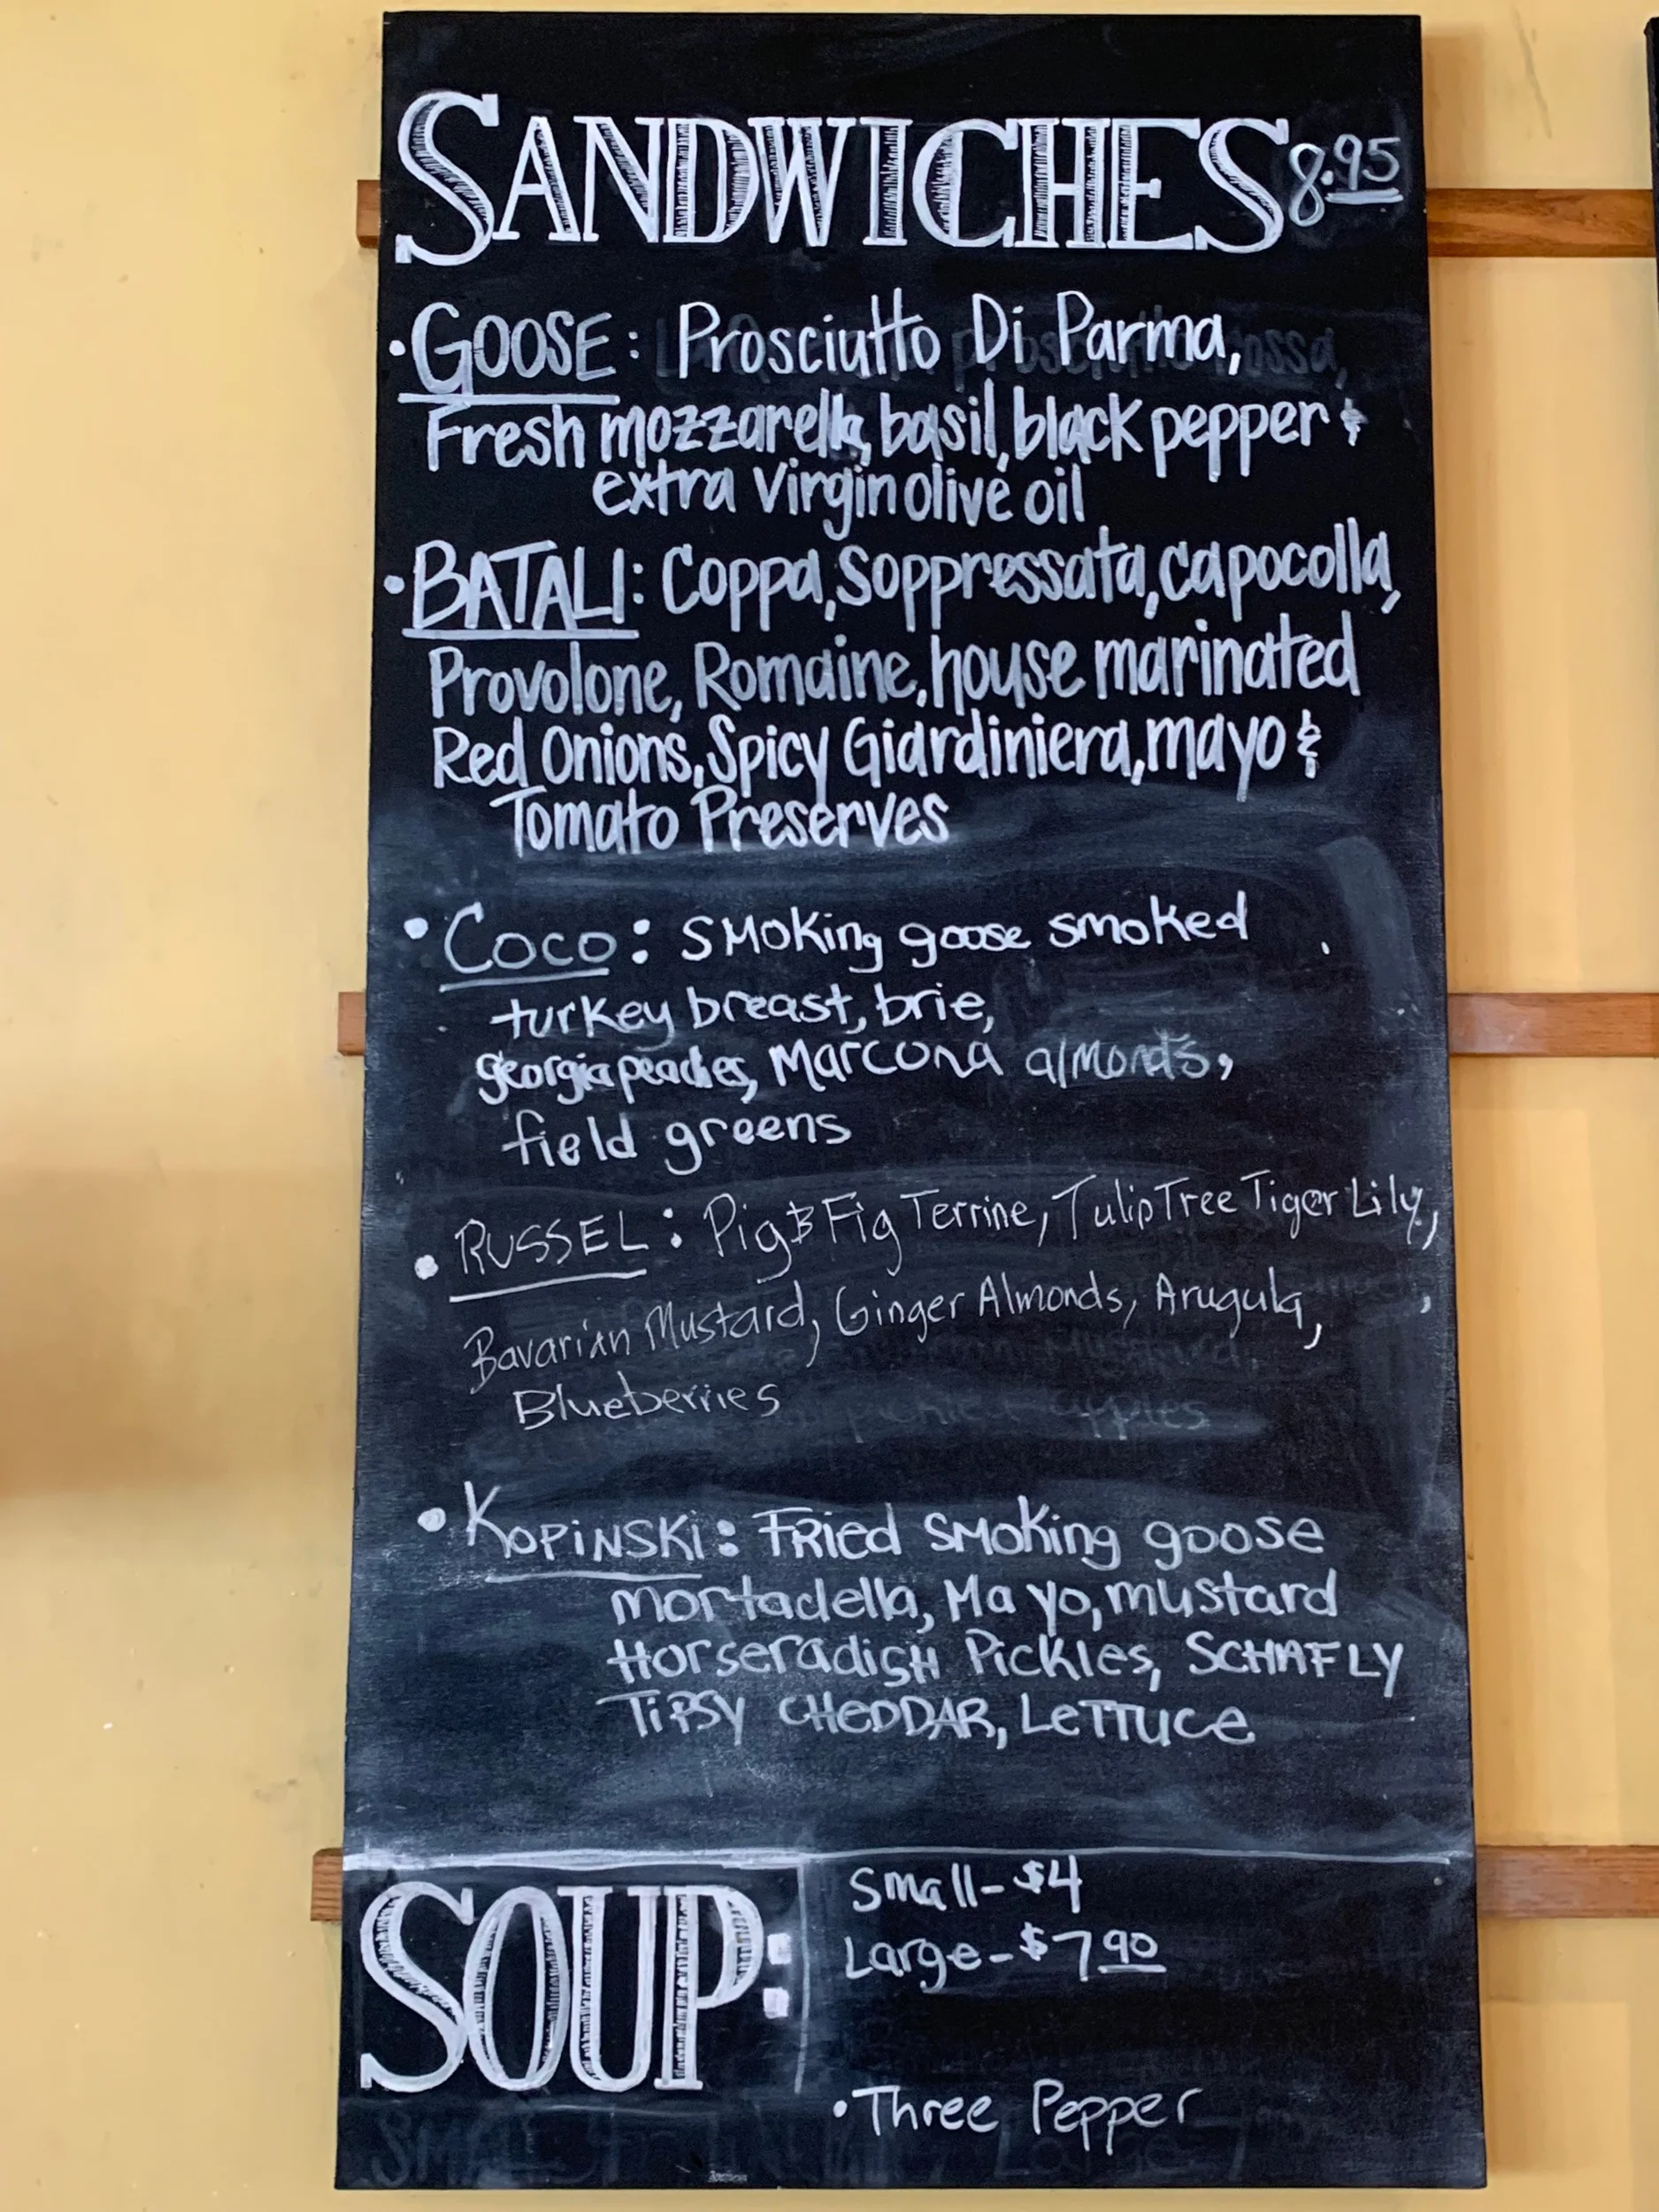 SANDWICHES 8.95
• GOOSE: Prosciutto Di Parma,
Fresh mozzarella, basil, black pepper &
extra Virgin olive oil
• BATALI: Coppa, Soppressata, capocolla,
Provolone, Romaine, house marinated
Red Onions, Spicy Giardiniera, mayo &
Tomato Preserves
• Coco: smoking goose smoked
turkey breast, brie,
georgia peaches, Marcona almonds,
field greens
• RUSSEL: Pig & Fig Terrine, TulipTree Tiger Lily,
Bavarian Mustard, Ginger Almonds, Arugula,
Blueberries
• KOPINSKI: FRied SMoking goose
mortadella, Mayo, mustard
Horseradish Pickles, SCHAFLY
TiPSY CHeDDAR, LeTTuce
SOUP:
Small - $4
Large - $7.90
• Three Pepper